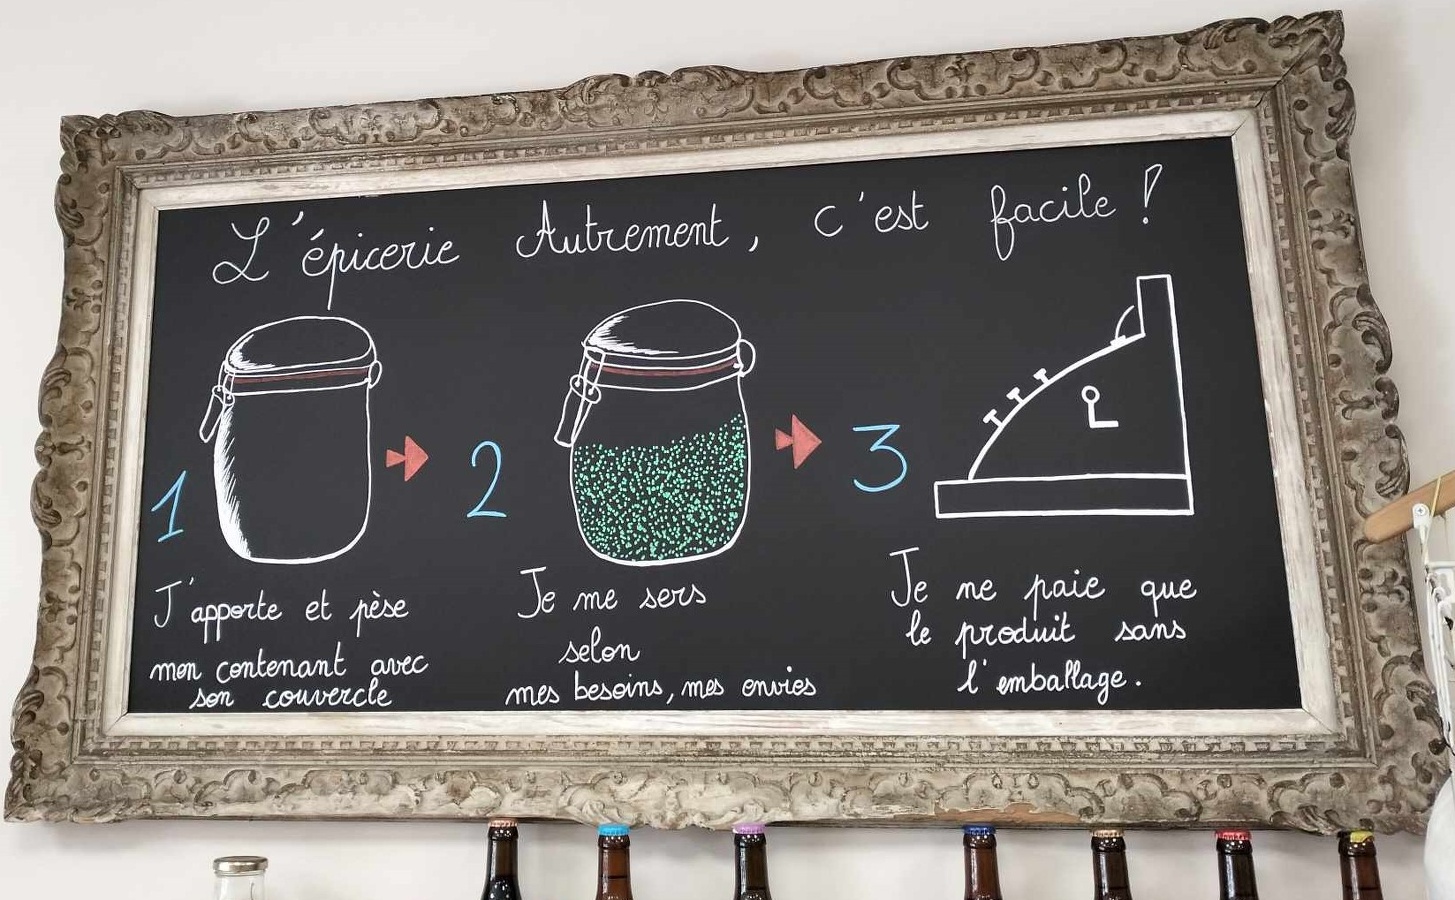 L'épicerie Autrement, c'est facile !
1
J'apporte et pèse
mon contenant avec
son couvercle
2
Je me sers
selon
mes besoins, mes envies
3
Je ne paie que
le produit sans
l'emballage.